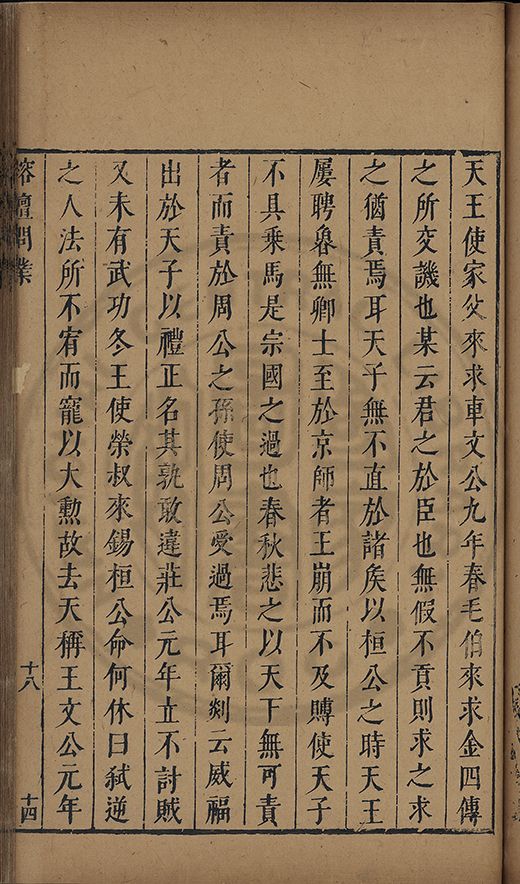 天王使家父來求車文公九年春毛伯來求金四傳
之所交譏也某云君之於臣也無假不貢則求之求
之猶責焉耳天子無不直於諸矦以桓公之時天王
屢聘魯無卿士至於京師者王崩而不及賻使天子
不具乗馬是宗國之過也春秋悲之以天下無可責
者而責於周公之孫使周公愛過焉耳爾剡云威福
出於天子以禮正名其孰敢違莊公元年立不討賊
又未有武功冬王使榮叔來錫桓公命何休曰弑逆
之人法所不宥而寵以大勲故去天稱王文公元年
榕壇問業
十八
十四